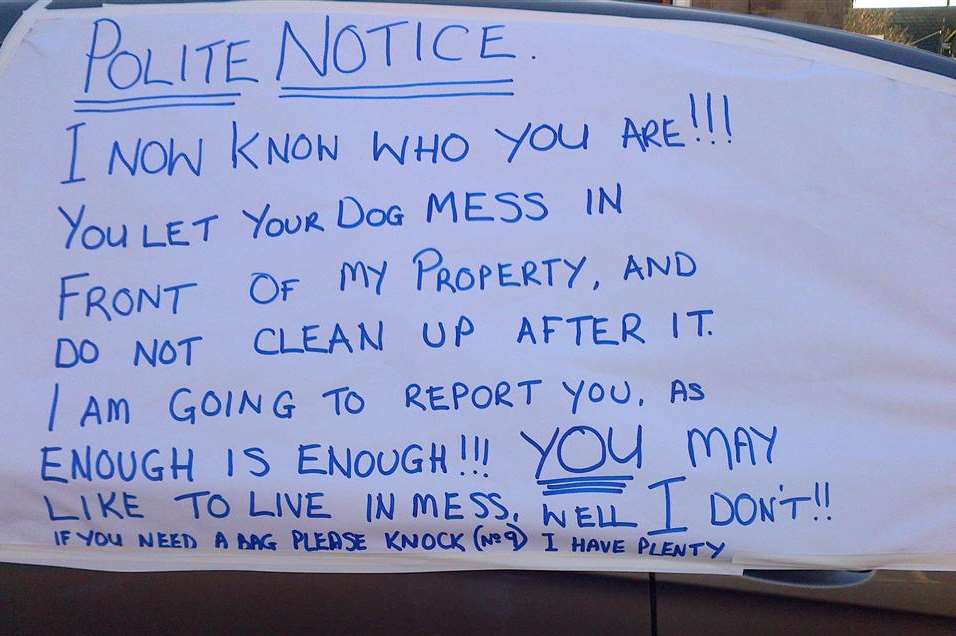 POLITE NOTICE.
I NOW KNOW WHO YOU ARE!!!
YOU LET YOUR DOG MESS IN
FRONT OF MY PROPERTY, AND
DO NOT CLEAN UP AFTER IT.
I AM GOING TO REPORT YOU, AS
ENOUGH IS ENOUGH!!! YOU MAY
LIKE TO LIVE IN MESS, WELL I DON'T!!
IF YOU NEED A BAG PLEASE KNOCK (No 9) I HAVE PLENTY